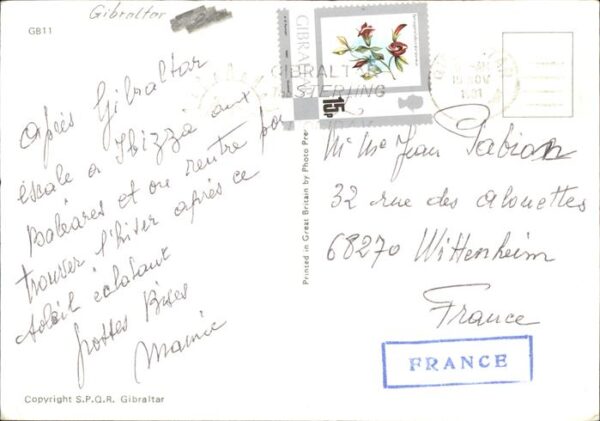 Gibraltar
GB11
Après Gibraltar
escale a Ibizza aux
Baléares et on rentre pour
trouver l'hiver après ce
soleil éclatant
grosses Bises
Mamie
Copyright S.P.Q.R. Gibraltar
Printed in Great Britain by Photo Pre
GIBRALTAR
15p
GIBRALTAR
STERLING
M. Me Jean Fabian
32 rue des alouettes
68270 Wittenheim
France
FRANCE